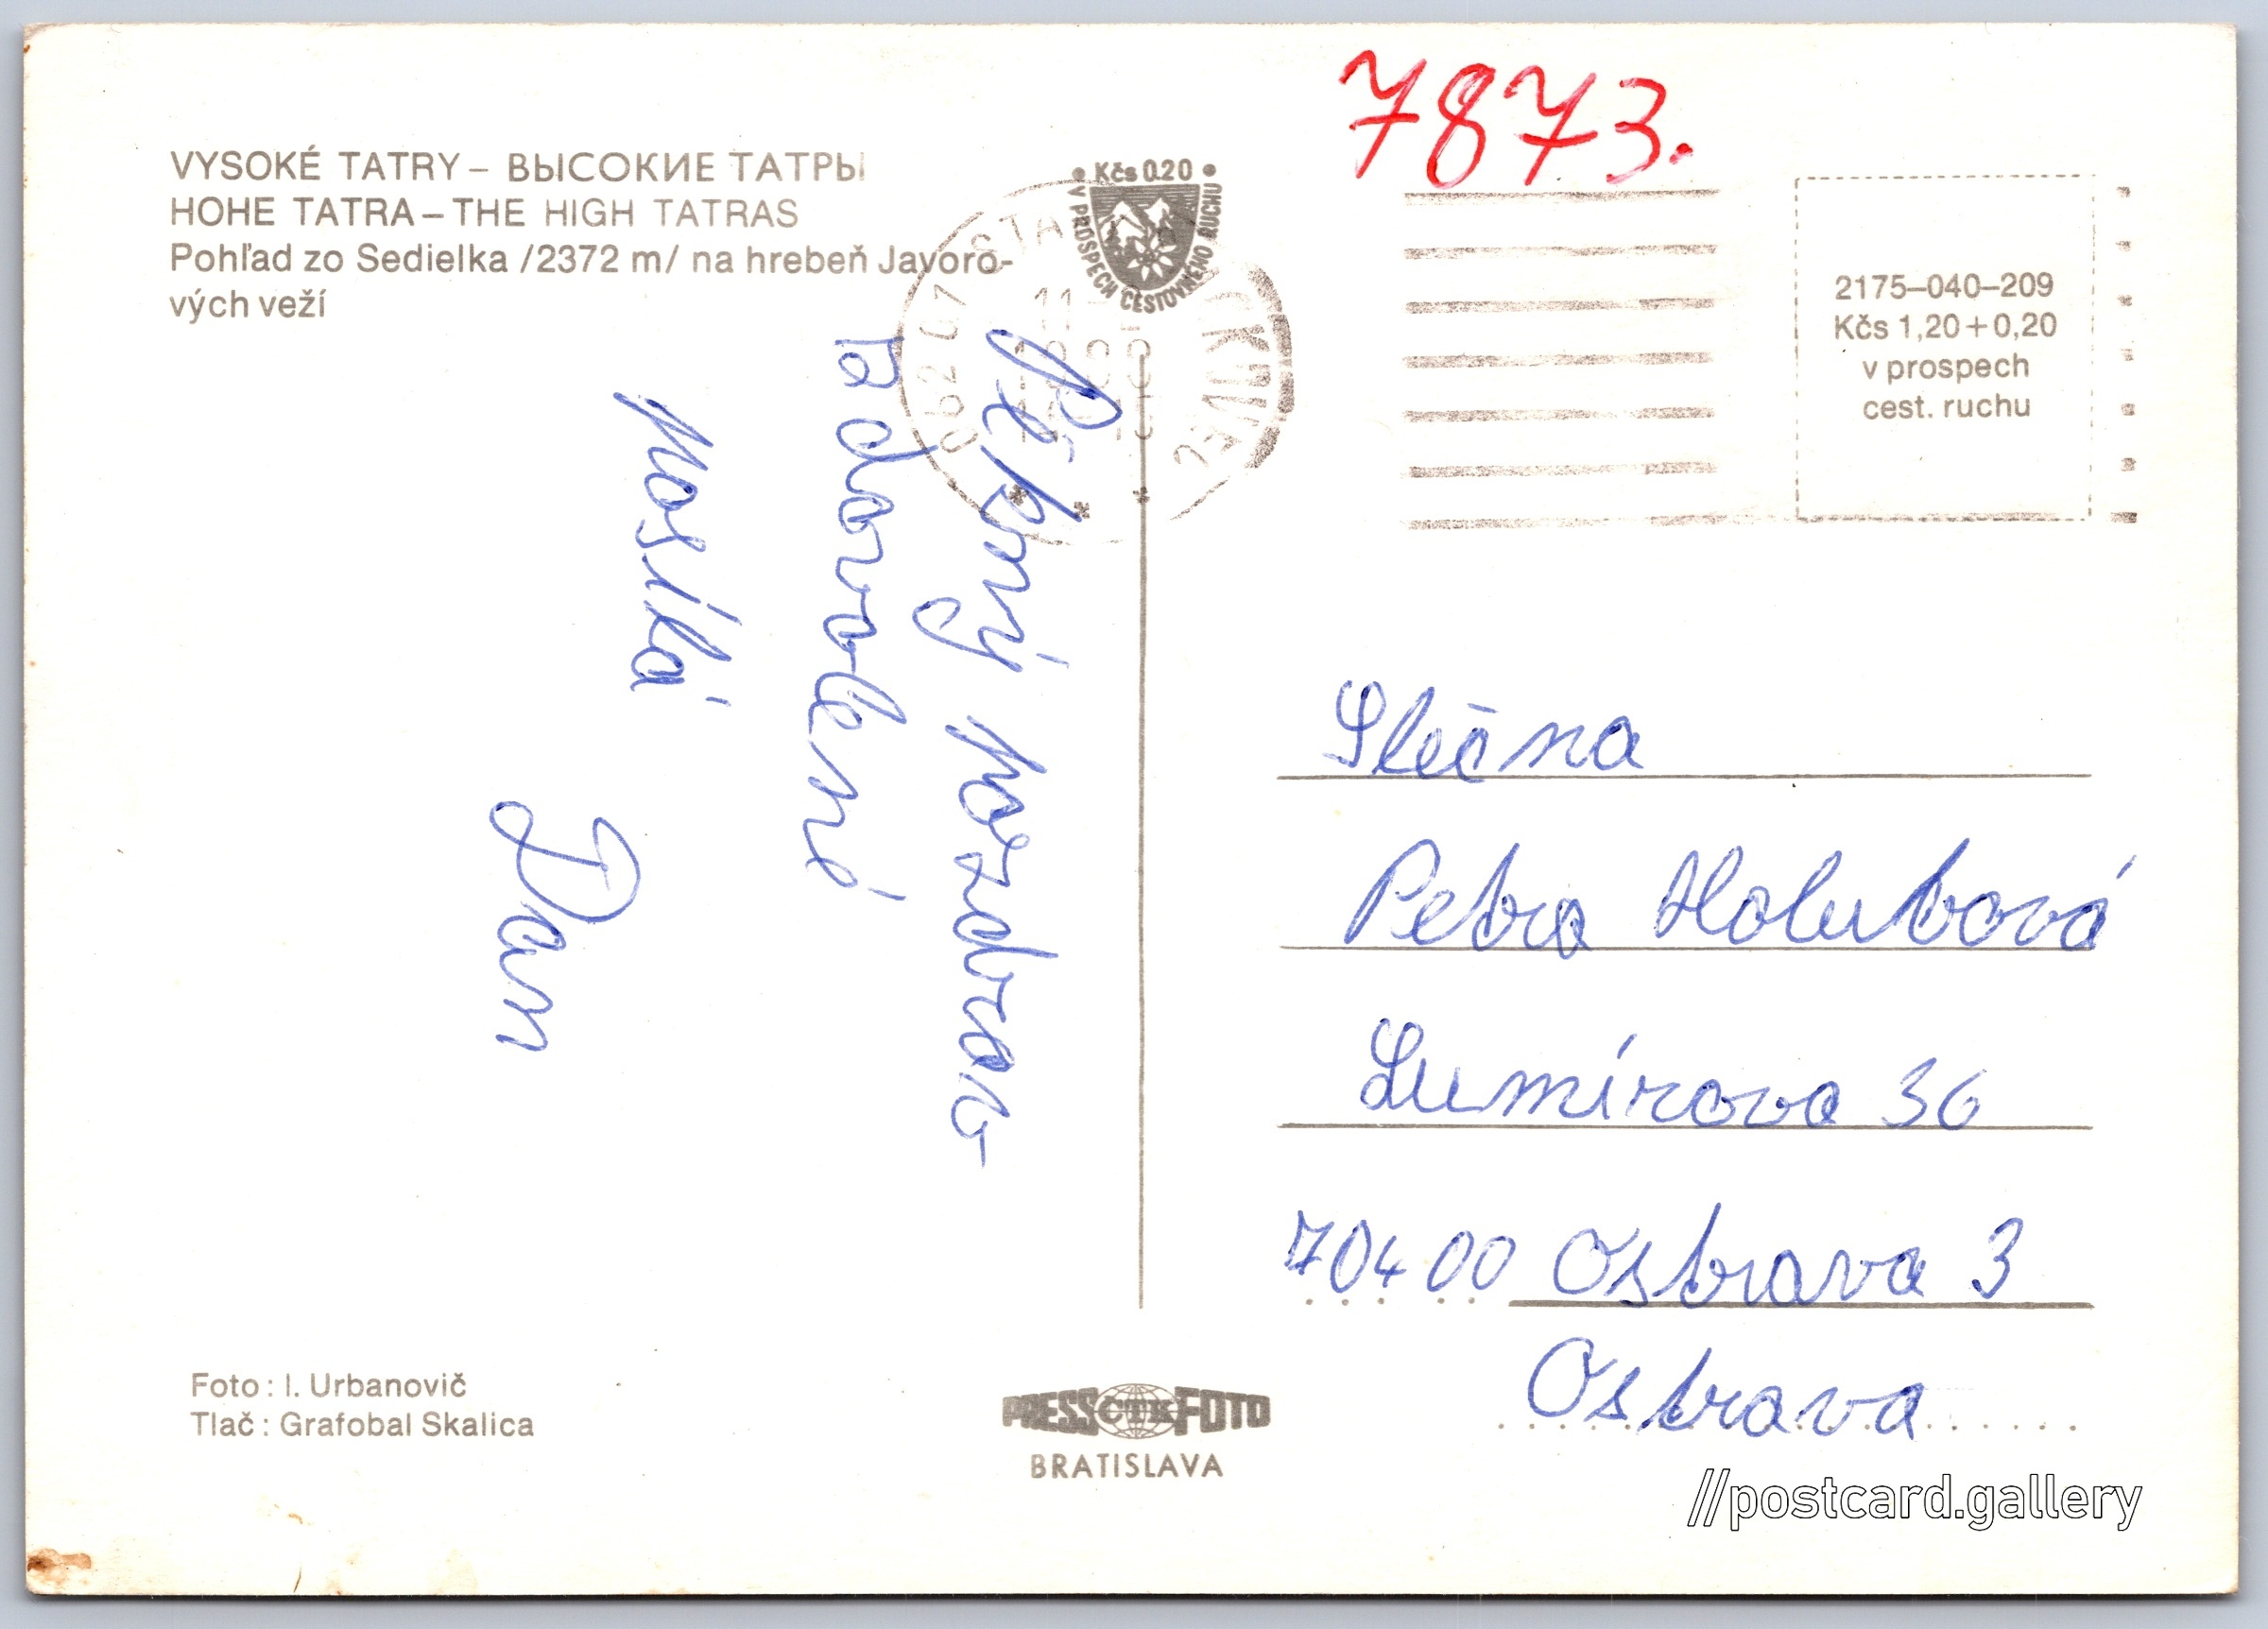 7873.
VYSOKÉ TATRY – ВЫСОКИЕ ТАТРЫ
HOHE TATRA – THE HIGH TATRAS
Pohľad zo Sedielka /2372 m/ na hrebeň Javoro-
vých veží
• Kčs 0.20 •
V PROSPECH CESTOVNÉHO RUCHU
062 01 STA
2175–040–209
Kčs 1,20 + 0,20
v prospech
cest. ruchu
Pěkný pozdrav
z dovolené
posílá
Dan
Slečna
Petra Holubová
Lumírova 36
704 00 Ostrava 3
Ostrava
Foto : I. Urbanovič
Tlač : Grafobal Skalica
PRESS ČTK FOTO
BRATISLAVA
//postcard.gallery